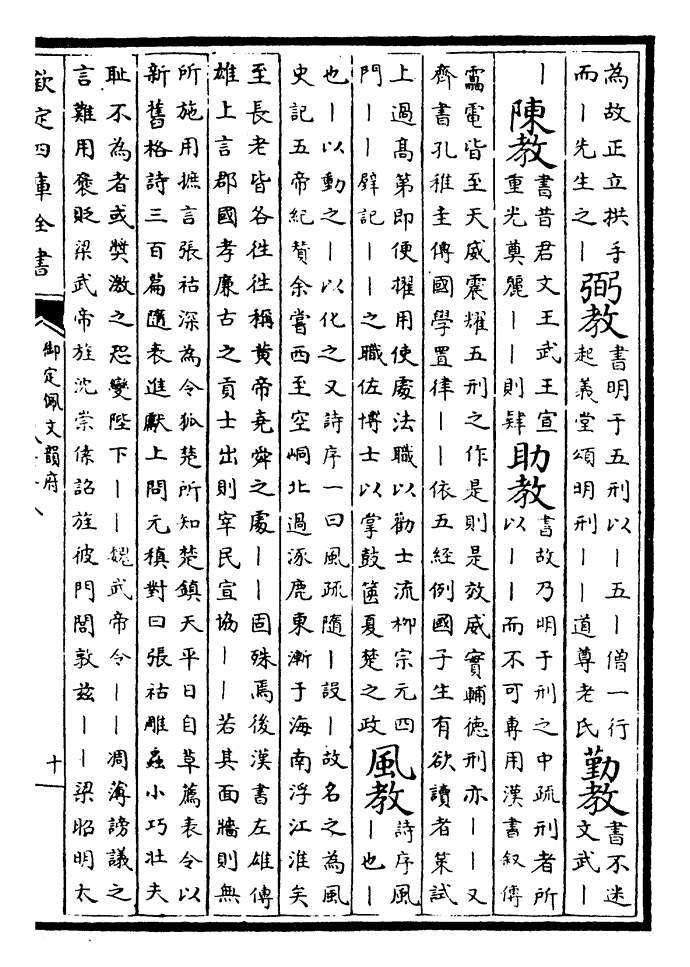 為故正立拱手
而｜先生之｜
弼教
書明于五刑以｜五｜僧一行
起義堂頌明刑｜｜道尊老氏
勤教
書不迷
文武｜
｜
陳教
書昔君文王武王宣
重光奠麗｜｜則肄
助教
書故乃明于刑之中疏刑者所
以｜｜而不可專用漢書叙傳
靁電皆至天威震耀五刑之作是則是效威實輔德刑亦｜｜又
齊書孔稚圭傳國學置律｜｜依五經例國子生有欲讀者策試
上過髙第即便擢用使處法職以勸士流栁宗元四
門｜｜壁記｜｜之職佐博士以掌鼓篋夏楚之政
風教
詩序風
｜也｜
也｜以動之｜以化之又詩序一曰風疏隨｜設｜故名之為風
史記五帝紀贊余嘗西至空峒北過涿鹿東漸于海南浮江淮矣
至長老皆各往往稱黄帝堯舜之處｜｜固殊焉後漢書左雄傳
雄上言郡國孝廉古之貢士出則宰民宣協｜｜若其面牆則無
所施用摭言張祜深為令狐楚所知楚鎮天平日自草薦表令以
新舊格詩三百篇隨表進獻上問元稹對曰張祜雕蟲小巧壯夫
耻不為者或奬激之恐變陛下｜｜魏武帝令｜｜凋薄謗議之
言難用褒貶梁武帝旌沈崇傃詔旌彼門閭敦兹｜｜梁昭明太
欽定四庫全書
御定佩文韻府
十